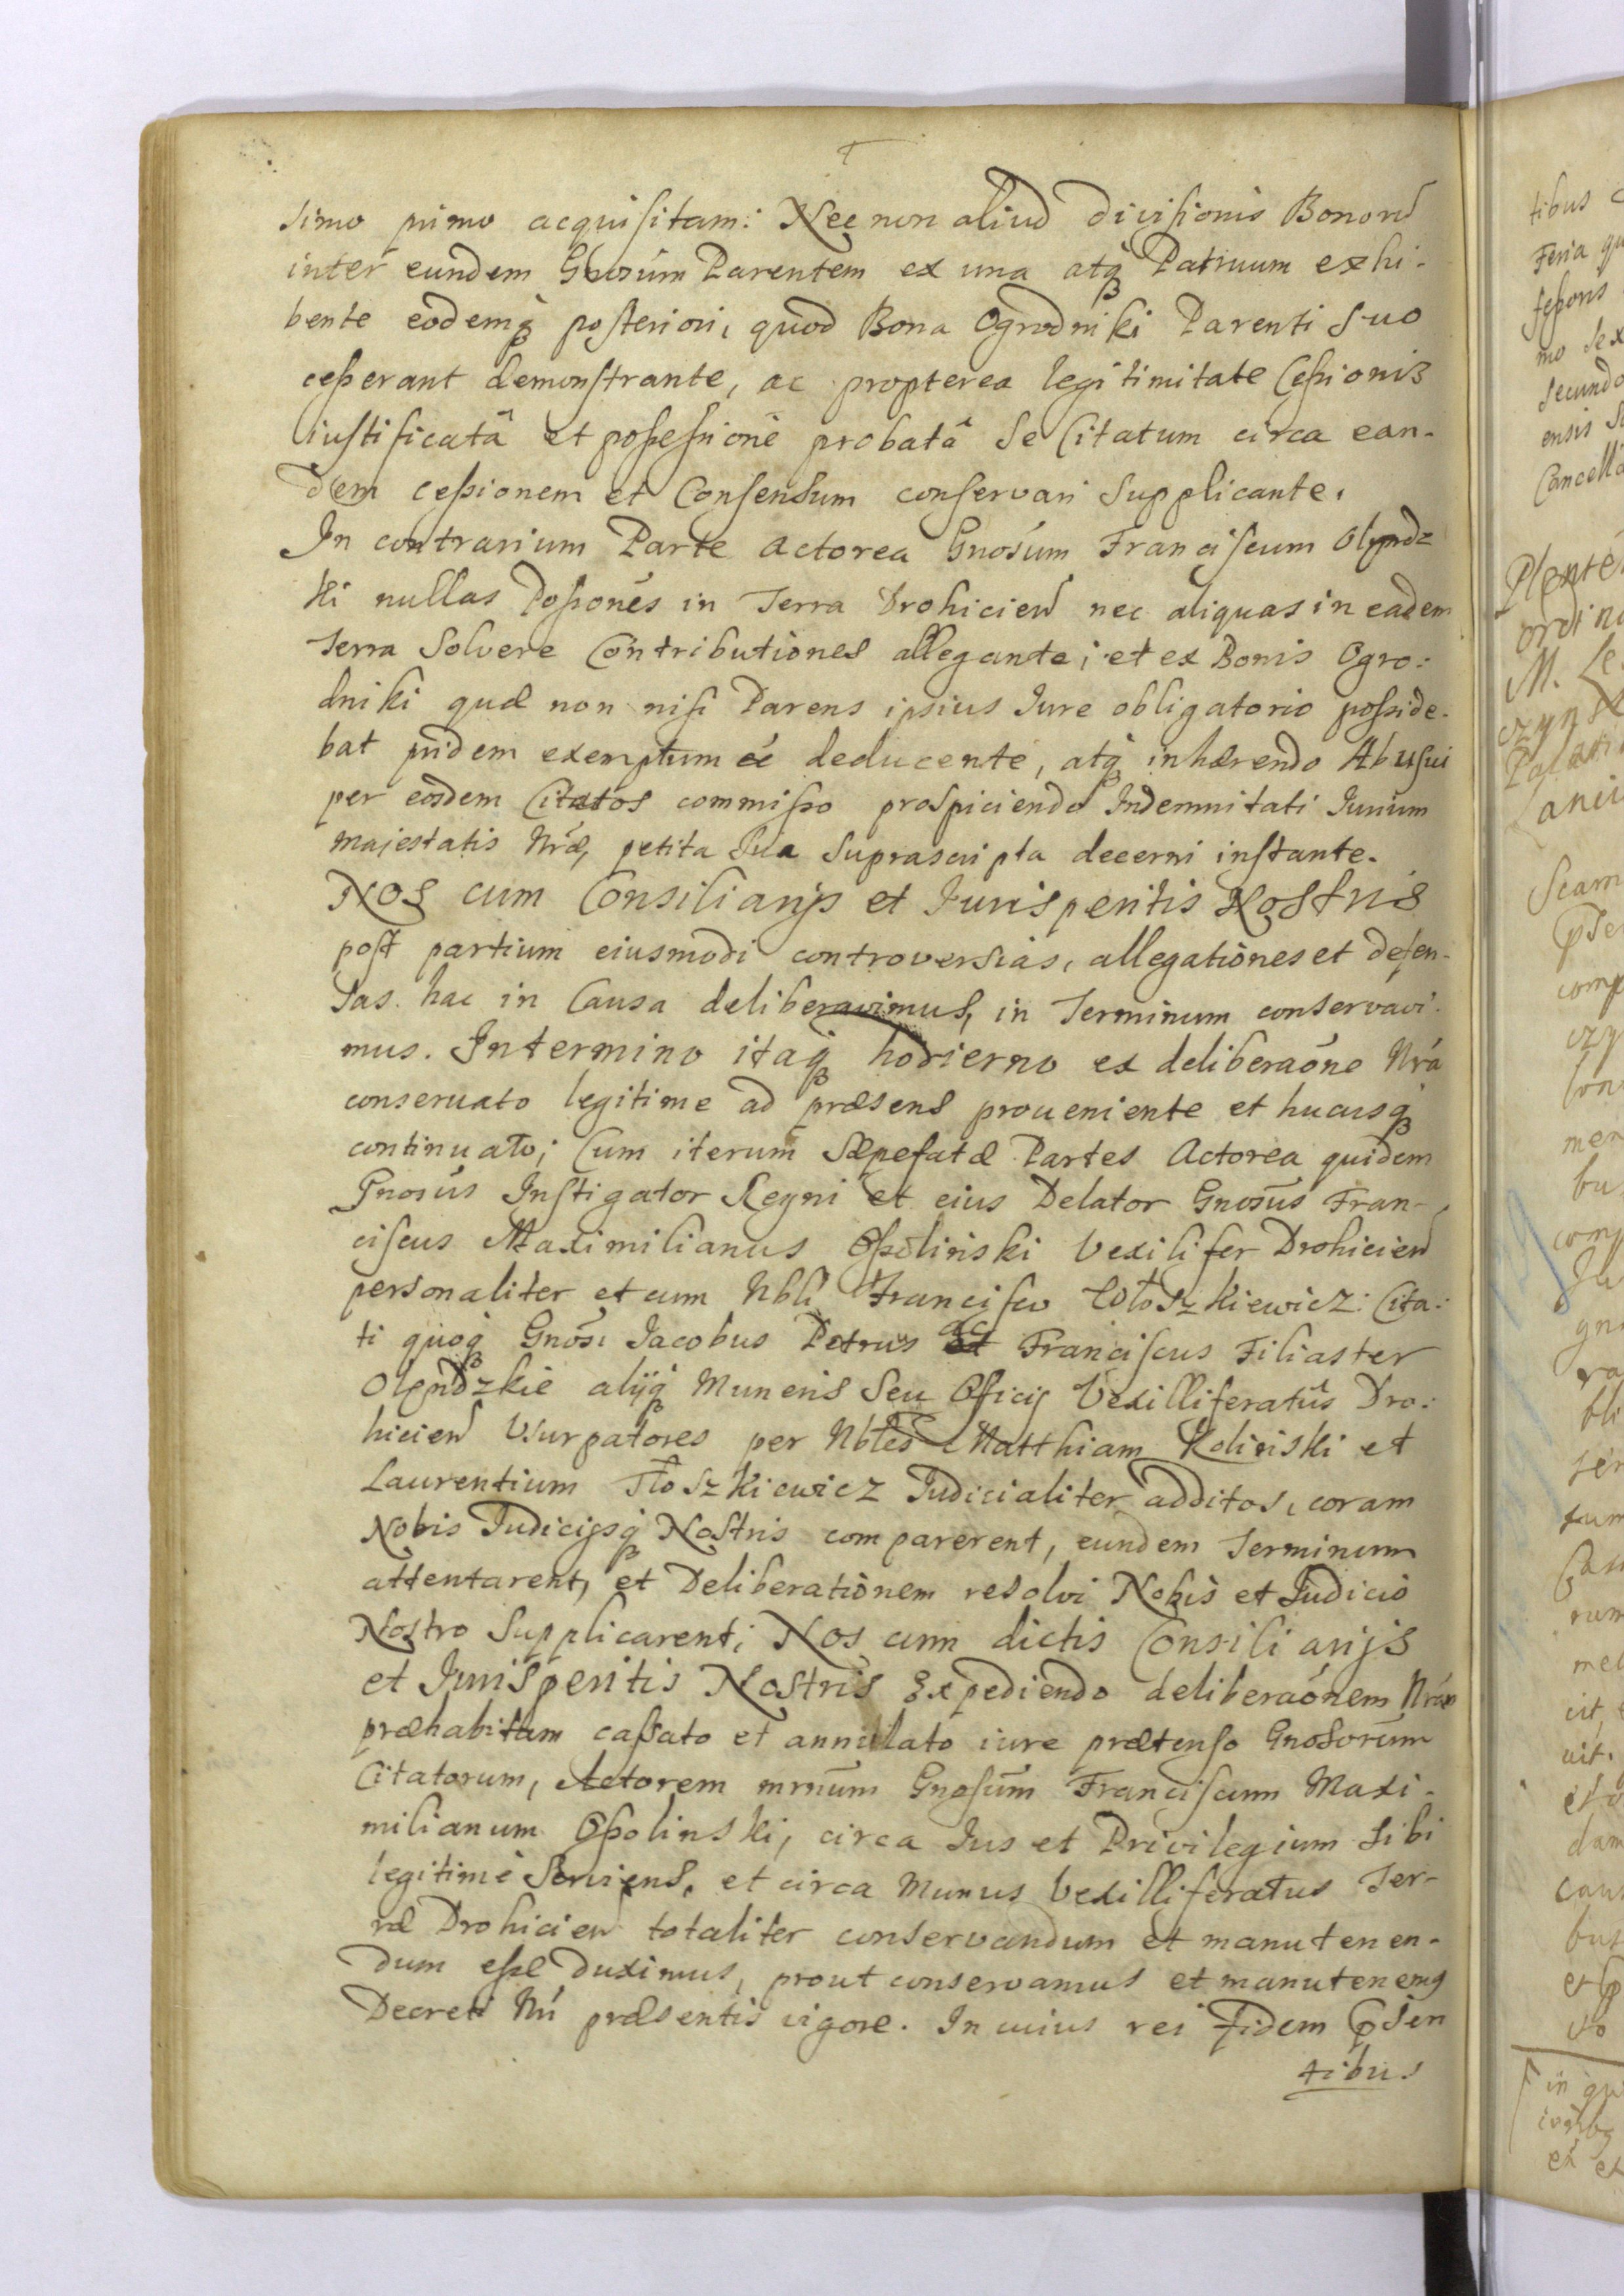 simo primo acquisitam: Nec non aliud divisionis Bonorũ
inter eundem Gnosum Parentem ex una atq Patruum exhi-
bente eodemq posteriori, quod Bona Ogrodniki Parenti suo
cesserant demonstrante, ac propterea legitimitate Cessionis
iustificatâ et possessione probatâ se Citatum circa ean-
dem cessionem et Consensum conservari supplicante.
In contrarium Parte Actorea Gnosum Franciscum Olędz
ki nullas Possones in Terra Drohicien nec aliquas in eadem
Terra Solvere Contributiones allegante; et ex Bonis Ogro:
dniki quæ non nisi Parens ipsius Iure obligatorio posside-
bat pridem exemptum ee deducente, atq inhærendo Abusui
per eosdem Citatos commisso prospiciendo Indemnitati Iurium
Majestatis Nræ, petita sua suprascripta decerni instante.
NOS cum Consiliarijs et Iurisperitis Nostris
post partium eiusmodi controversias, allegationes et defen-
sas hac in Causa deliberavimus, in Terminum conservavi-
mus. In termino itaq hodierno ex deliberaone Nra
conservato legitime ad præsens proveniente et hucusq
continuato; Cum iterum Sæpefatæ Partes Actorea quidem
Gnosus Instigator Regni et eius Delator Gnosus Fran-
ciscus Maximilianus Ossoliński Vexilifer Drohicien
personaliter et cum Nbli Francisco Włoszkiewicz: Cita:
ti quoq Gnosi Jacobus Petrus ac Franciscus Filiaster
Olędzkie alijq Muneris Seu Officij Vexilliferatûs Dro:
hicien Usurpatores per Nbles Matthiam Koliński et
Laurentium Tłoszkiewicz Iudicialiter additos, coram
Nobis Iudicijsq Nostris comparerent, eundem Terminum
attentarent, et Deliberationem resolvi Nobis et Iudicio
Nostro Supplicarent; Nos cum dictis Consiliarijs
et Iurisperitis Nostris Expediendo deliberaonem Nram
præhabitam cassato et annulato iure prætenso Gnosorum
Citatorum, Actorem mrnum Gnosum Franciscum Maxi-
milianum Ossolinski, circa Ius et Privilegium sibi
legitime Serviens, et circa Munus Vexilliferatus Ter-
ræ Drohicien totaliter conservandum et manutenen-
dum esse duximus, prout conservamus et manutenemq
Decreti Nri præsentis vigore. In cuius rei fidem pSen
tibus